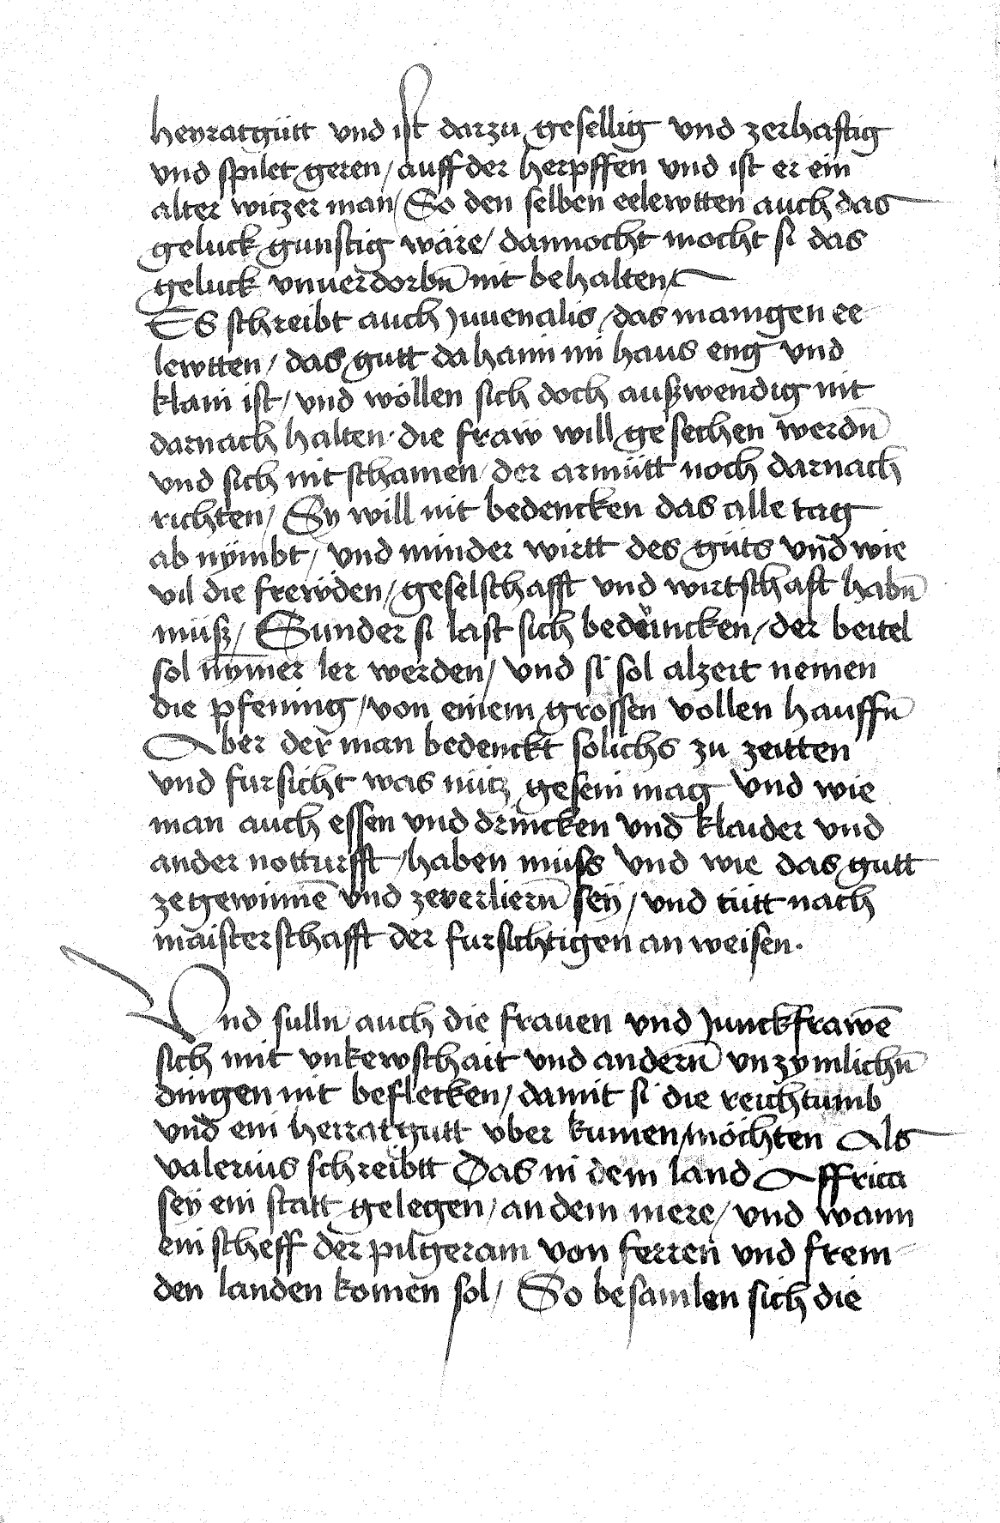 heyratgütt vnd ist darzu gesellig vnd zerhafftig
vnd spilet geren / auff der herpffen vnd ist er ein
alter witzer man / So den selben eelewtten auch das
geluck gunstig wäre / dannocht mocht si das
geluck vnuerdorbn̄ nit behalten /
Es schreibt auch Juuenalis / das manigen ee
lewtten / das gutt dahaim im haus eng vnd
klain ist / vnd wöllen sich doch außwendig nit
darnach halten · die fraw will gesechen werdn̄
vnd sich nit schamen / der armütt noch darnach
richten / Sy will nit bedencken das alle tag
ab nÿmbt / vnd minder wirtt des güts vnd wie
vil die frewden / geselschafft vnd wirtschafft habn̄
müß / Sunder si last sich beduncken / der beitel
sol nÿmer ler werden / vnd si sol alzeit nemen
die pfening / von einem grossen vollen hauffn̄
Aber der man bedenckt solichs zu zeitten
vnd fursicht was nütz gesein mag vnd wie
man auch essen vnd drincken vnd klaider vnd
ander notturfft / haben müss vnd wie das gutt
zegewinnē vnd zeuerliern̄ seÿ / vnd tütt nach
maisterschafft der fursichtigen an weisen ·
Vnd sulln̄ auch die frauen vnd Junckfrawē
sich mit vnkewschait vnd andern̄ vnzymlichn̄
dingen nit beflecken / damit si die reichtumb
vnd ein heiratgutt vber kumen möchten Als
valerius schreibtt Das in dem land Affrica
seÿ ein statt gelegen / an dem mere / vnd wann
ein scheff der pilgeram von ferren vnd frem=
den landen komen sol / So besamlen sich die